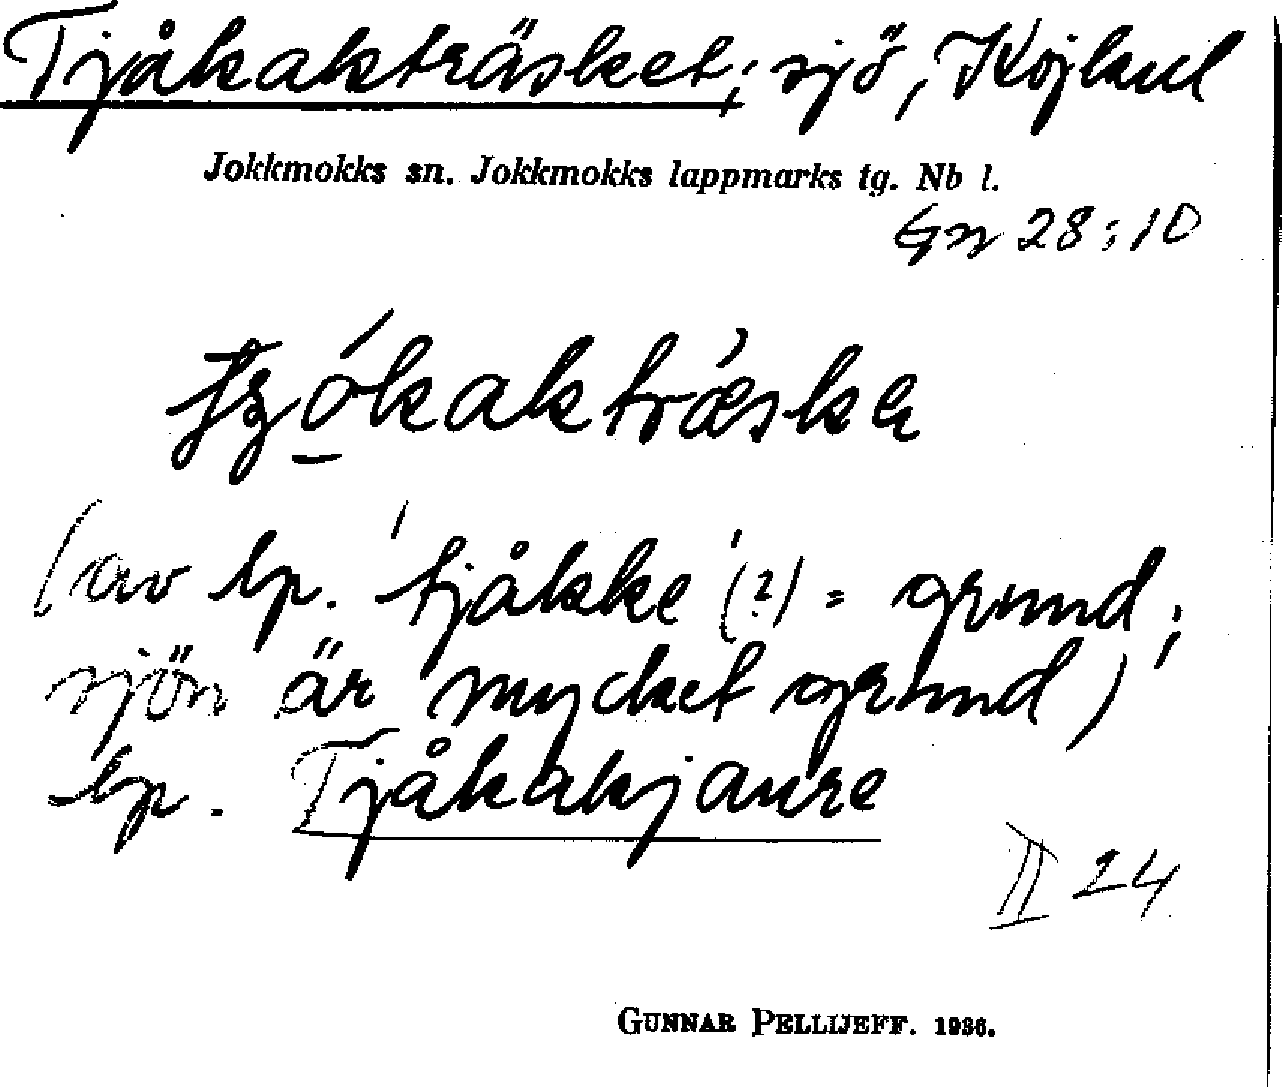 Tjåkakträsket; sjö, Kojkul
Jokkmokks sn. Jokkmokks lappmarks tg. Nb l.
Gn 28:10
(av lp. 'tjåkke' (?) = grund;
sjön är mycket grund)
lp. Tjåkakjaure
II 24
GUNNAR PELLIJEFF. 1936.